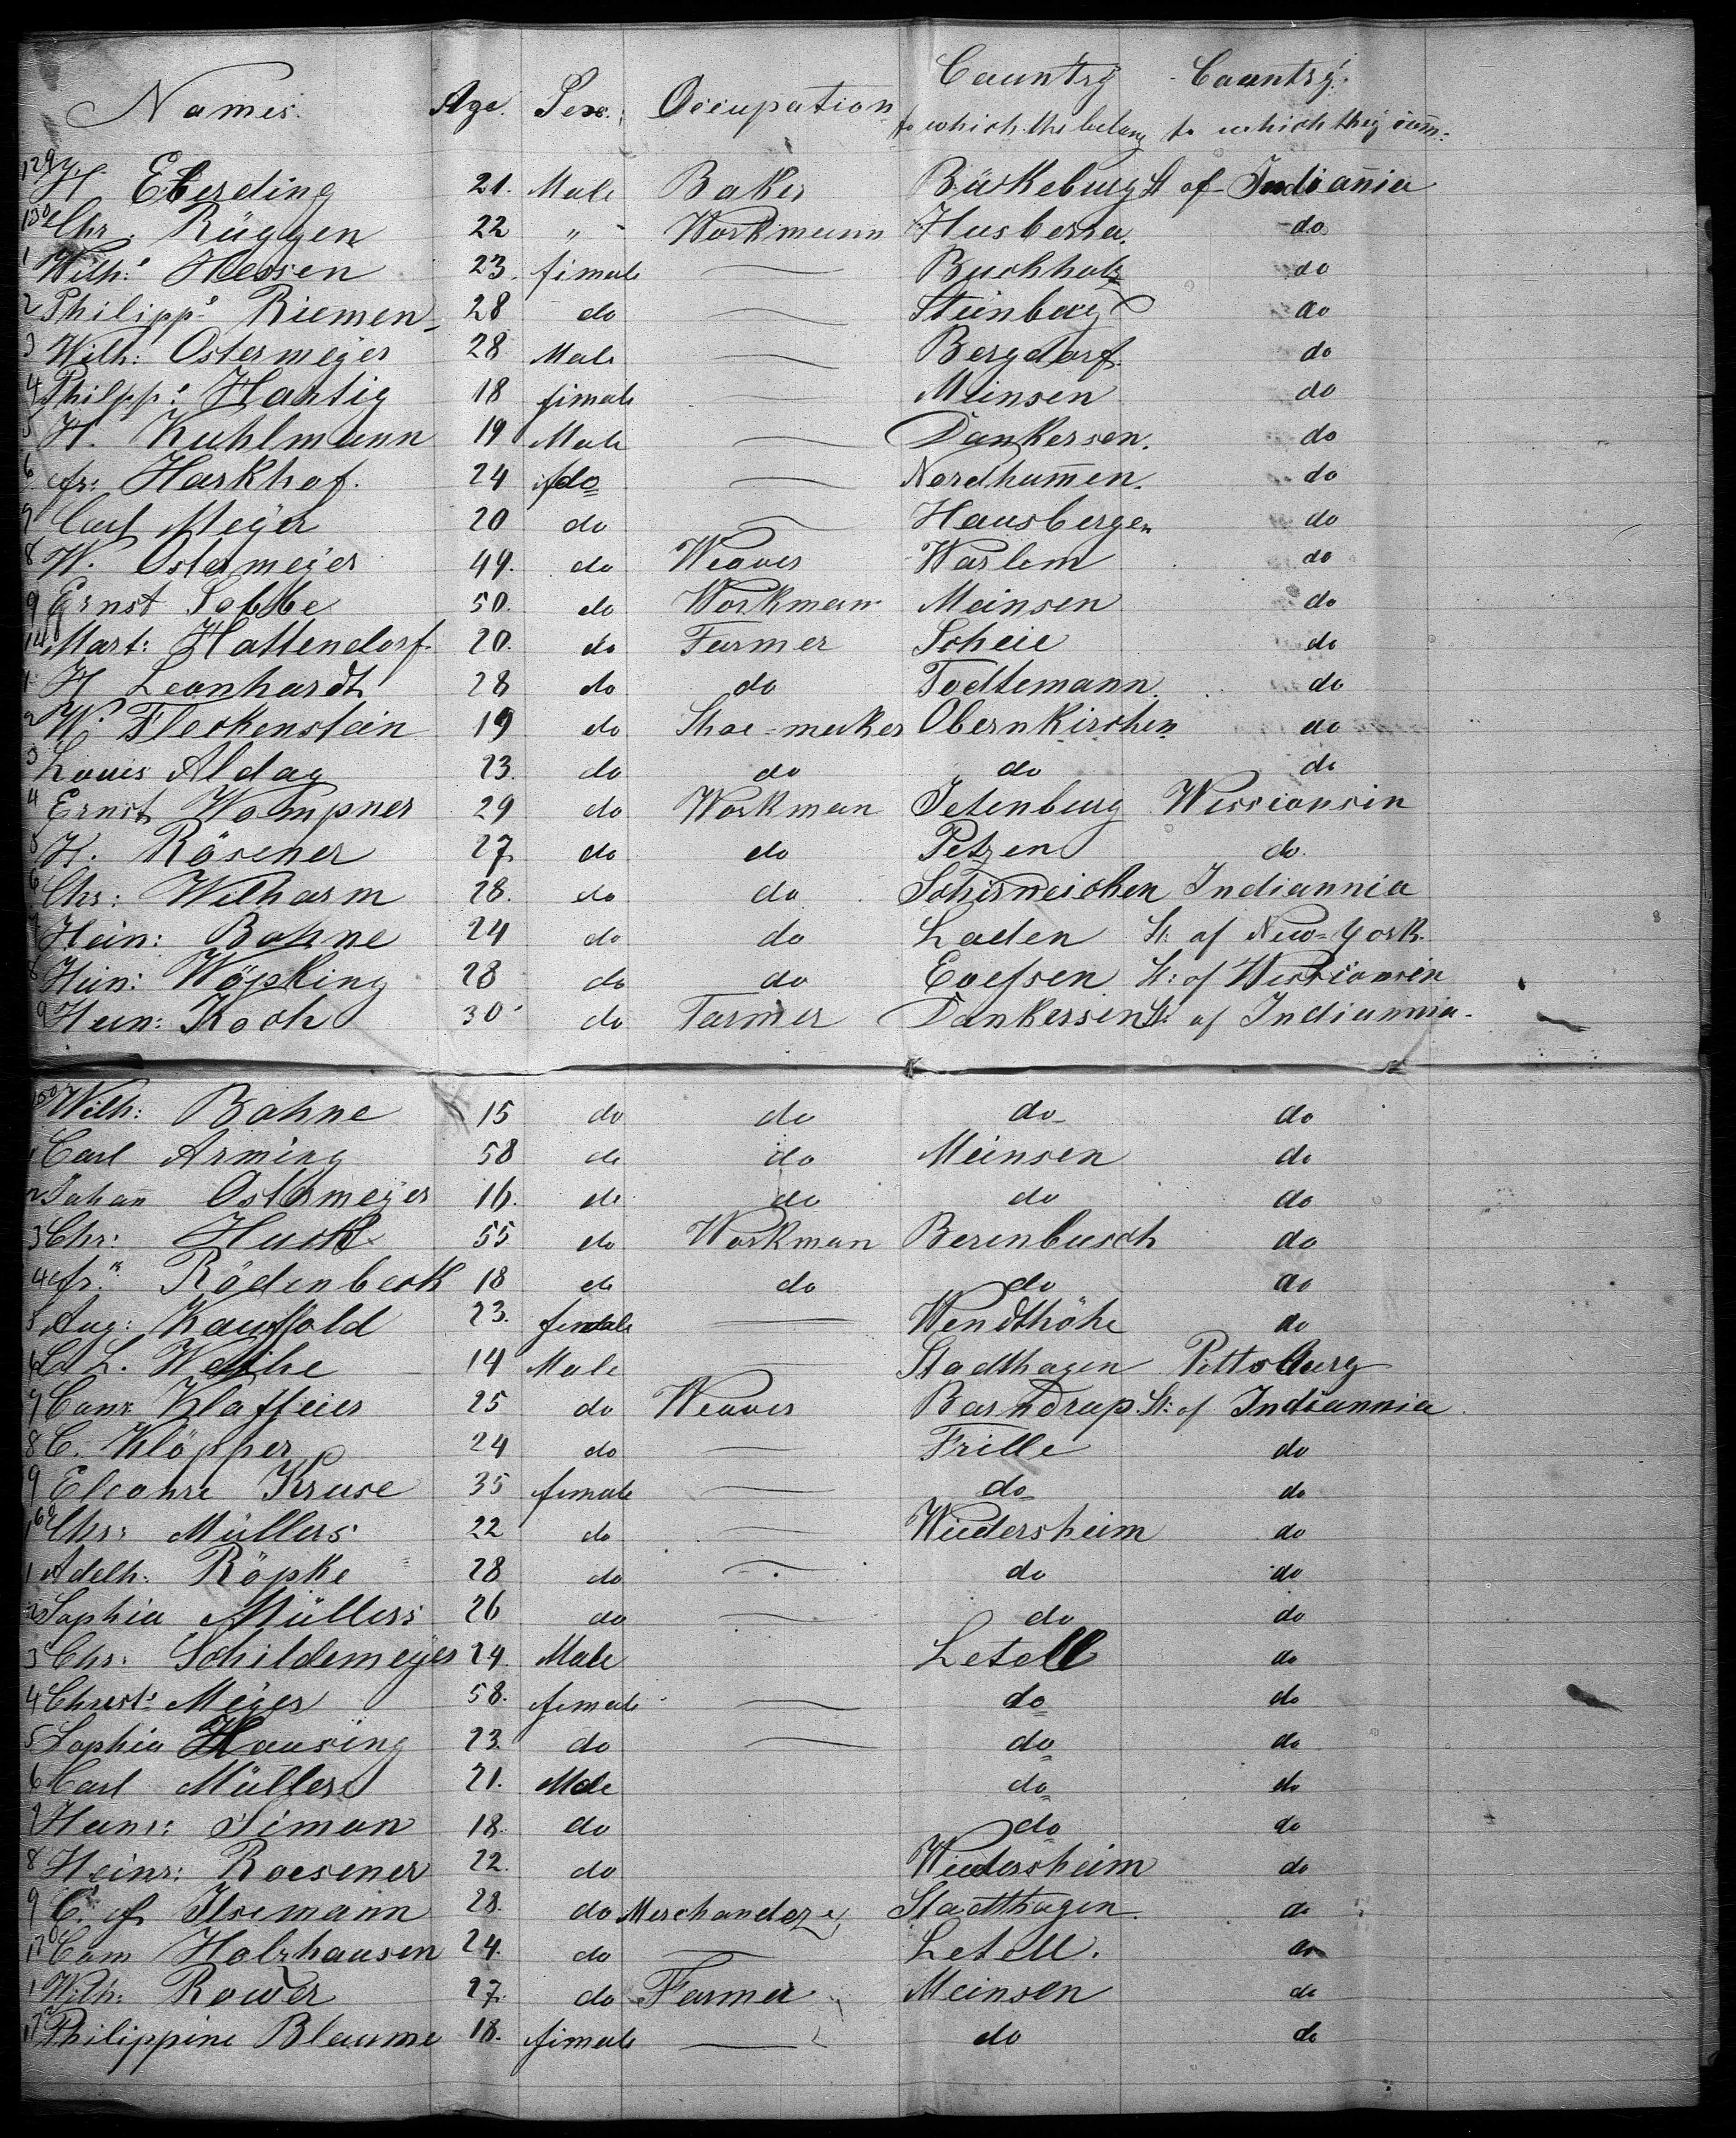 Names. Age. Sex. Occupation Cauntry Cauntry.
to which the belong to which they
129 H. Eberding 21. Male Baker Bückeburg St of Indiannia
130 Chr. Rüggen 22 " Workmann Husberra. do
1 Wilh: Hessen 23. fimale — Buchholz do
2 Philipp: Riemen 28 do — Steinberg do
3 Wilh: Ostermeyer 28 Male — Bergdorf. do
4 Philpp: Hartig 18 fimale — Meinsen do
5 H. Kuhlmann 19 Male — Dankersen. do
6 fr: Harkhof. 24 do — Nordham̅en. do
7 Carl Meyer 20 do — Hausbergen do
8 W. Ostermeyer 49. do Weaver Warlem do
9 Ernst Sobbe 50. do Workman Meinsen do
140 Mart: Hattendorf. 20. do Farmer Scheie do
1 H Leonhardt 28 do do Todtemann. do
2 W. Fleckenstein 19 do Shoe=mecker Obernkirchen do
3 Louis Aldag 23. do do do do
4 Ernst Wompner 29 do Workman Jetenburg Wissionsin
5 H. Rösener 27. do do Petzen do.
6 Chr: Wilharm 28. do do Schierneichen Indiannia
7 Hein: Bohne 24 do do Laden St. of New=York.
8 Hein: Wöpking 28 do do Evessen St: of Wissionsin
9 Hein: Koch 30 do Farmer Dankersen St: of Indiannia.
150 Wilh: Bohne 15 do do do do
1 Carl Arming 58 do do Meinsen do
2 Johan̅ Ostermeyer 16. do do do do
3 Chr: Huck 55 do Workman Berenbusch do
4 fr: Rödenbeck 18 do do do do
5 Aug: Kauffold 23. female — Wendthöhe do
6 L. Weihe 14 Male — Stadthagen Pittsburg
7 Klaffeier 25 do Weaver Barndrup. St: of Indiannia.
8 C. Klöpper 24 do — Frille do
9 Eleonre Kruse 35 female — do do
160 Chr: Müllers 22 do — Wiedersheim do
1 Adelh. Röpke 28 do — do do
2 Sophia Müllers 26 do — do do
3 Chr. Schildemeyer 24. Male Letell do
4 Christ: Meyer 58. female — do do
5 Sophia Hausing 23. do — do do
6 Carl Müllers 21. Male do do
7 Hans: Simon 18. do do do
8 Heinr: Roesener 22. do Wiedersheim do
9 C. f Ilsemann 28. do Merchandeze Stadthagen. do
170 Holzhausen 24. do — Letell. do
1 Wilh: Rower 27. do Farmer Meinsen do
172 Philippine Blaume 18. fimale — do do